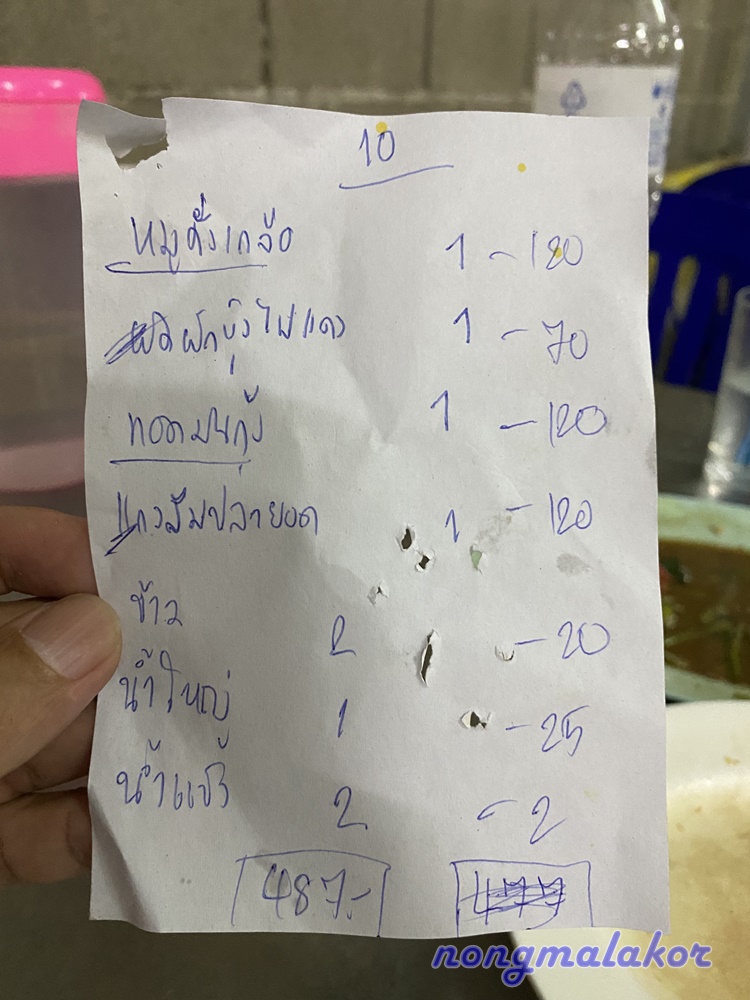 10
หมูคั่วเกลือ 1 - 120
ผัดผักบุ้งไฟแดง 1 - 70
ทอดมันกุ้ง 1 - 120
แกงส้มปลายอด 1 - 120
ข้าว 2 - 20
น้ำใหญ่ 1 - 25
น้ำแข็ง 2 - 2
487.-
nongmalakor